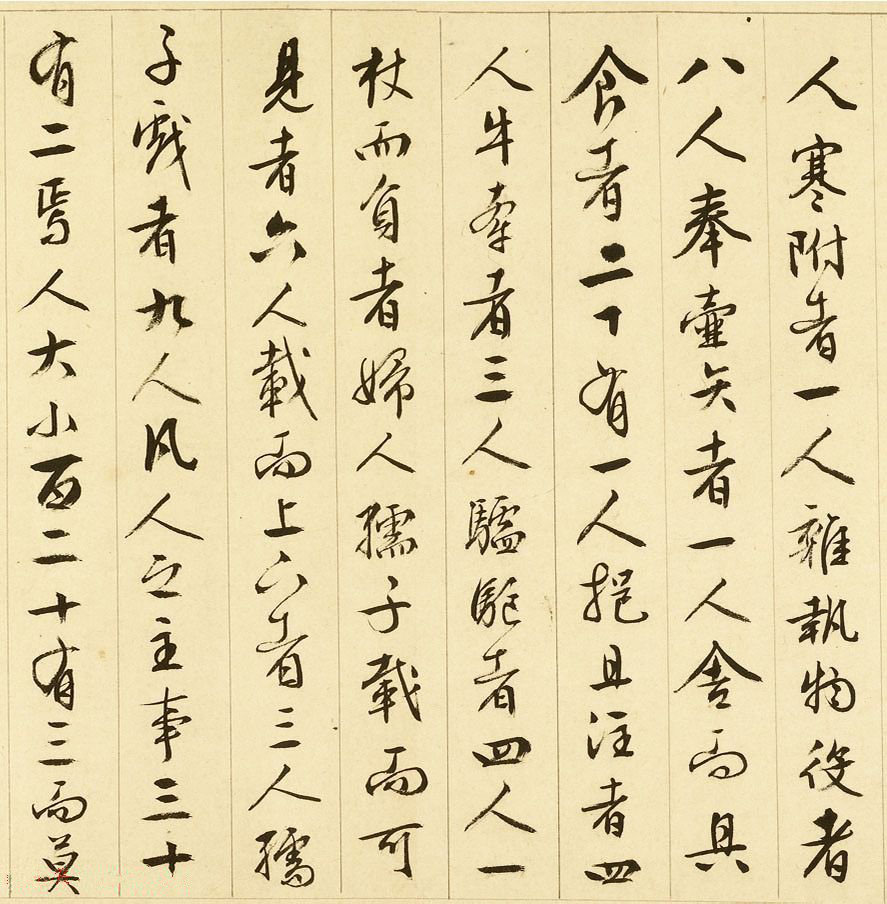 人寒附者一人雜執物役者
八人奉壺矢者一人舍而具
食者二有一人挹且注者四
人牛牽者三人驢駈者四人一
杖而負者婦人孺子載而可
見者六人載而上下者三人孺
子戲者九人凡人之主事三十
有二焉人大小百二十有三而莫